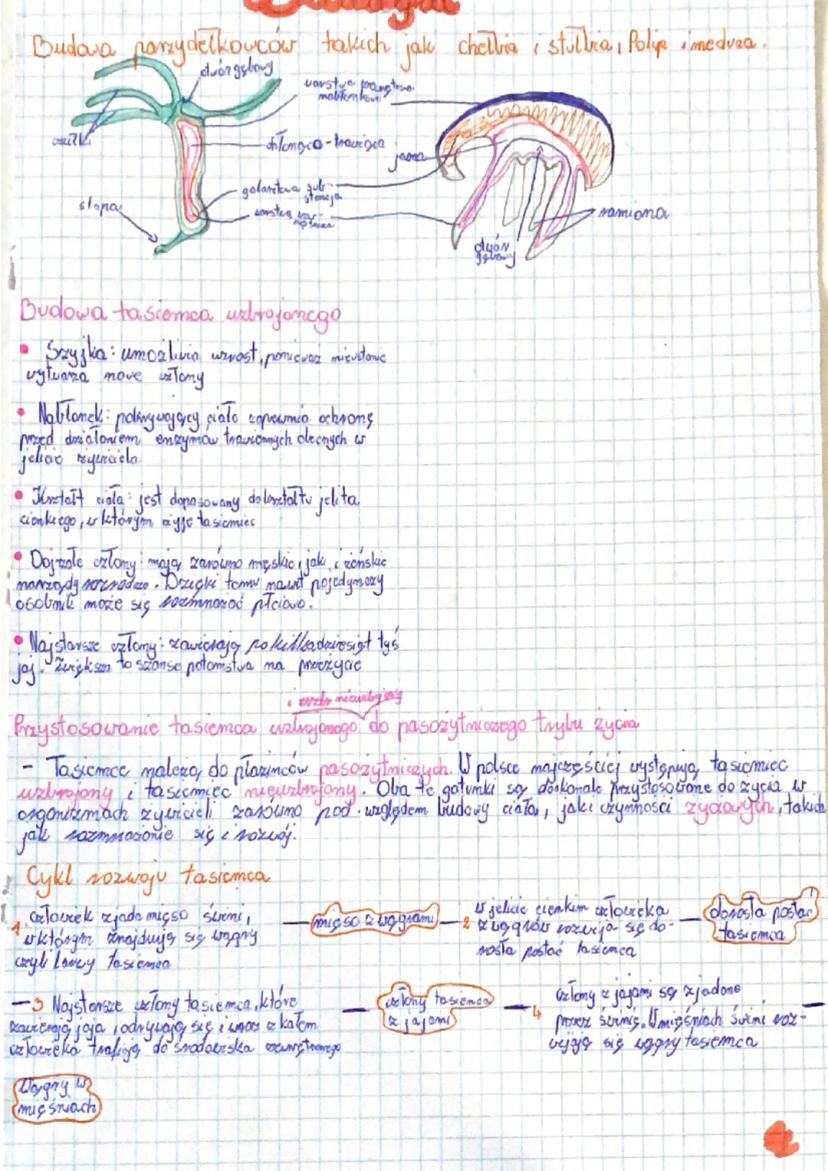 Biologia
Budowa parzydełkowców takich jak chełbia i stułbia, Polip i meduza.
otwór gębowy
czułki
stopa
warstwa powierzchniowo
nabłonkowa
chłonąco-trawiąca
jama
galaretowa sub-
stancja
warstwa
otwór
gębowy
ramiona
Budowa tasiemca uzbrojonego
• Szyjka: umożliwia wzrost, ponieważ nieustanie
wytwarza nowe człony
• Nabłonek: pokrywający ciało zapewnia ochronę
przed działaniem enzymów trawiennych obecnych w
jelicie żywiciela
• Kształt ciała: jest dopasowany do kształtu jelita
cienkiego, w którym żyje tasiemiec
• Dojrzałe człony: mają zarówno męskie, jak i żeńskie
narządy rozrodcze. Dzięki temu nawet pojedynczy
osobnik może się rozmnażać płciowo.
• Najstarsze człony: zawierają po kilkadziesiąt tyś
jaj. Zwiększa to szanse potomstwa na przeżycie
i nieuzbrojony
Przystosowanie tasiemca uzbrojonego do pasożytniczego trybu życia
- Tasiemce należą do płazińców pasożytniczych. W polsce najczęściej występują tasiemiec
uzbrojony i tasiemiec nieuzbrojony. Oba te gatunki są doskonale przystosowane do życia w
organizmach żywicieli zarówno pod względem budowy ciała, jak i czynności życiowych, takich
jak rozmnażanie się i rozwój.
Cykl rozwoju tasiemca
1 Człowiek zjada mięso świni,
w którym znajdują się wągry
czyli larwy tasiemca
mięso z wągrami
2 W jelicie cienkim człowieka
z wągrów rozwija się do-
rosła postać tasiemca
dorosła postać
tasiemca
3 Najstarsze człony tasiemca, które
zawierają jaja, odrywają się i wraz z kałem
człowieka trafiają do środowiska zewnętrznego
człony tasiemca
z jajami
4 Człony z jajami są zjadane
przez świnię. W mięśniach świni roz-
wijają się wągry tasiemca
Wągry w
mięśniach